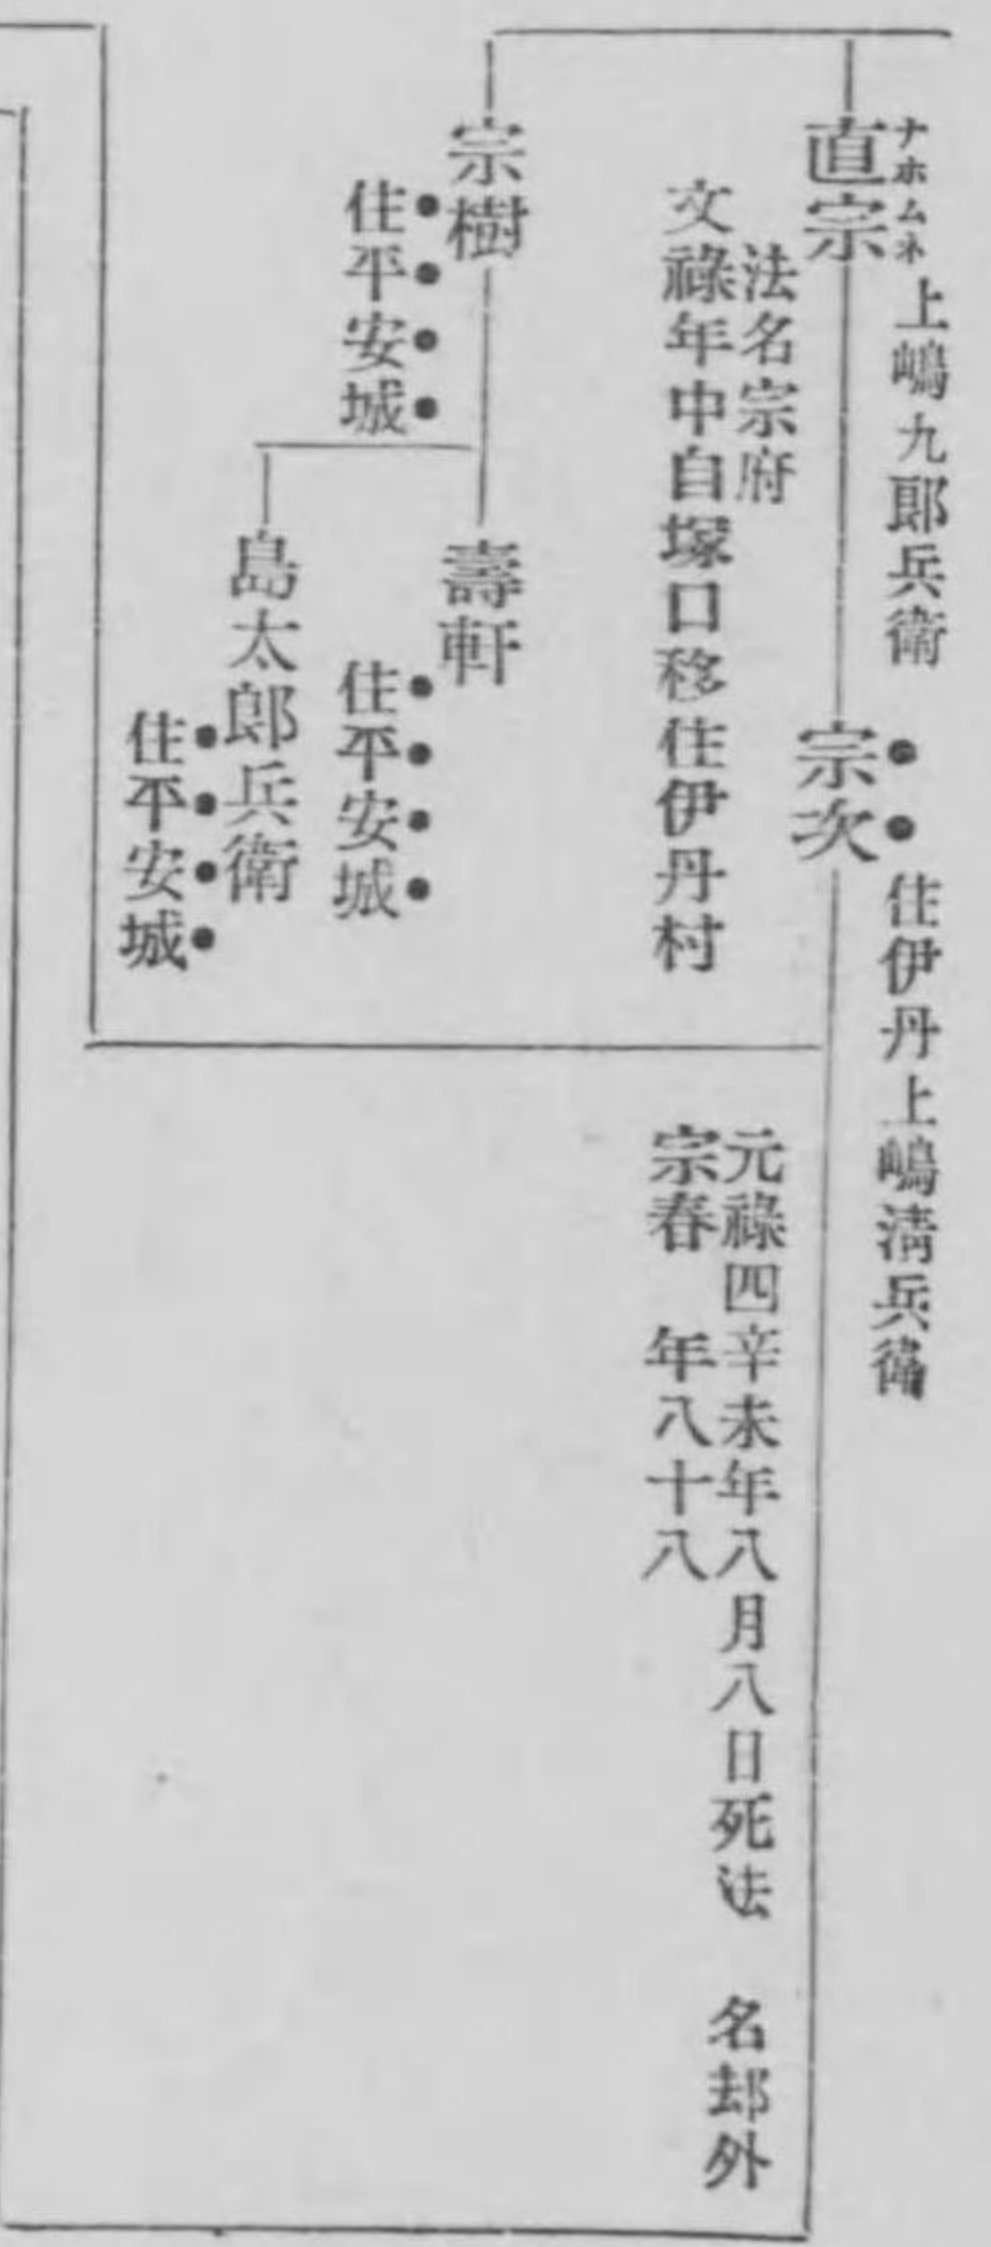 直宗
ナホムネ
上嶋九郎兵衛
法名宗府
文祿年中自塚口移住伊丹村
宗次
住伊丹上嶋淸兵衛
元祿四辛未年八月八日死法 名邽外
宗春 年八十八
宗樹
住平安城
壽軒
住平安城
島太郎兵衛
住平安城